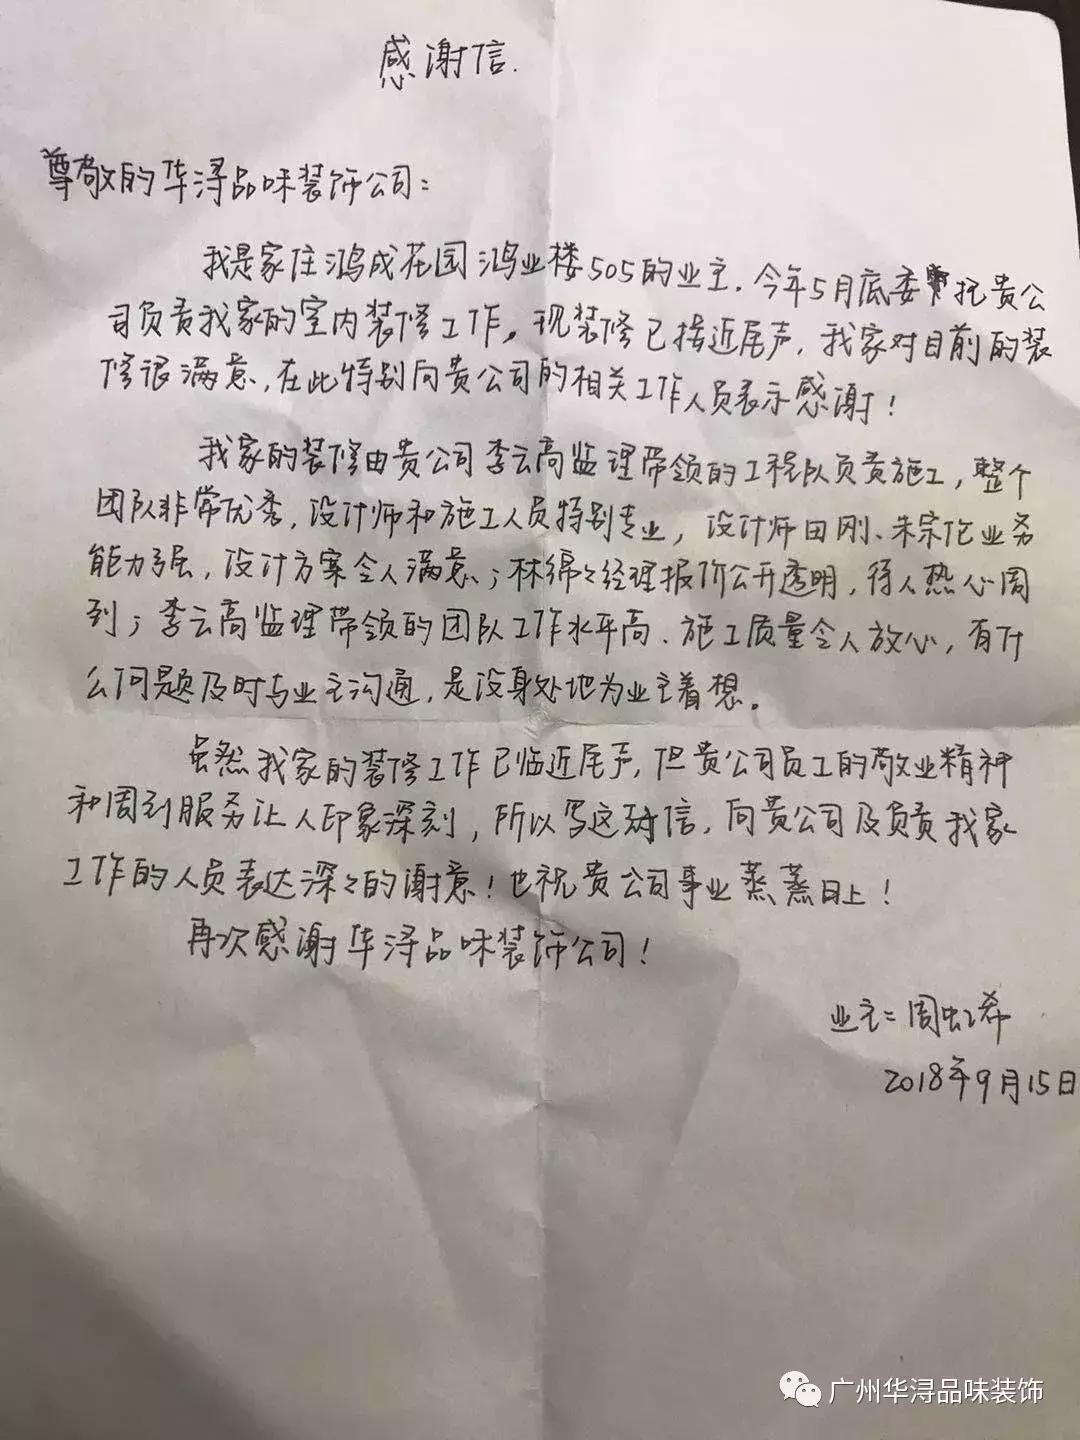 感谢信.
尊敬的华浔品味装饰公司:
我是家住鸿成花园鸿业楼505的业主.今年5月底委托贵公
司负责我家的室内装修工作。现装修已接近尾声,我家对目前的装
修很满意,在此特别向贵公司的相关工作人员表示感谢!
我家的装修由贵公司李云高监理带领的工程队负责施工,整个
团队非常优秀,设计师和施工人员特别专业,设计师田刚、朱宗伦业务
能力强,设计方案令人满意;林绵々经理报价公开透明,待人热心周
到;李云高监理带领的团队工作水平高、施工质量令人放心,有什
么问题及时与业主沟通,是设身处地为业主着想。
虽然我家的装修工作已临近尾声,但贵公司员工的敬业精神
和周到服务让人印象深刻,所以写这封信,向贵公司及负责我家
工作的人员表达深々的谢意!也祝贵公司事业蒸蒸日上!
再次感谢华浔品味装饰公司!
业主:周虹希
2018年9月15日
广州华浔品味装饰